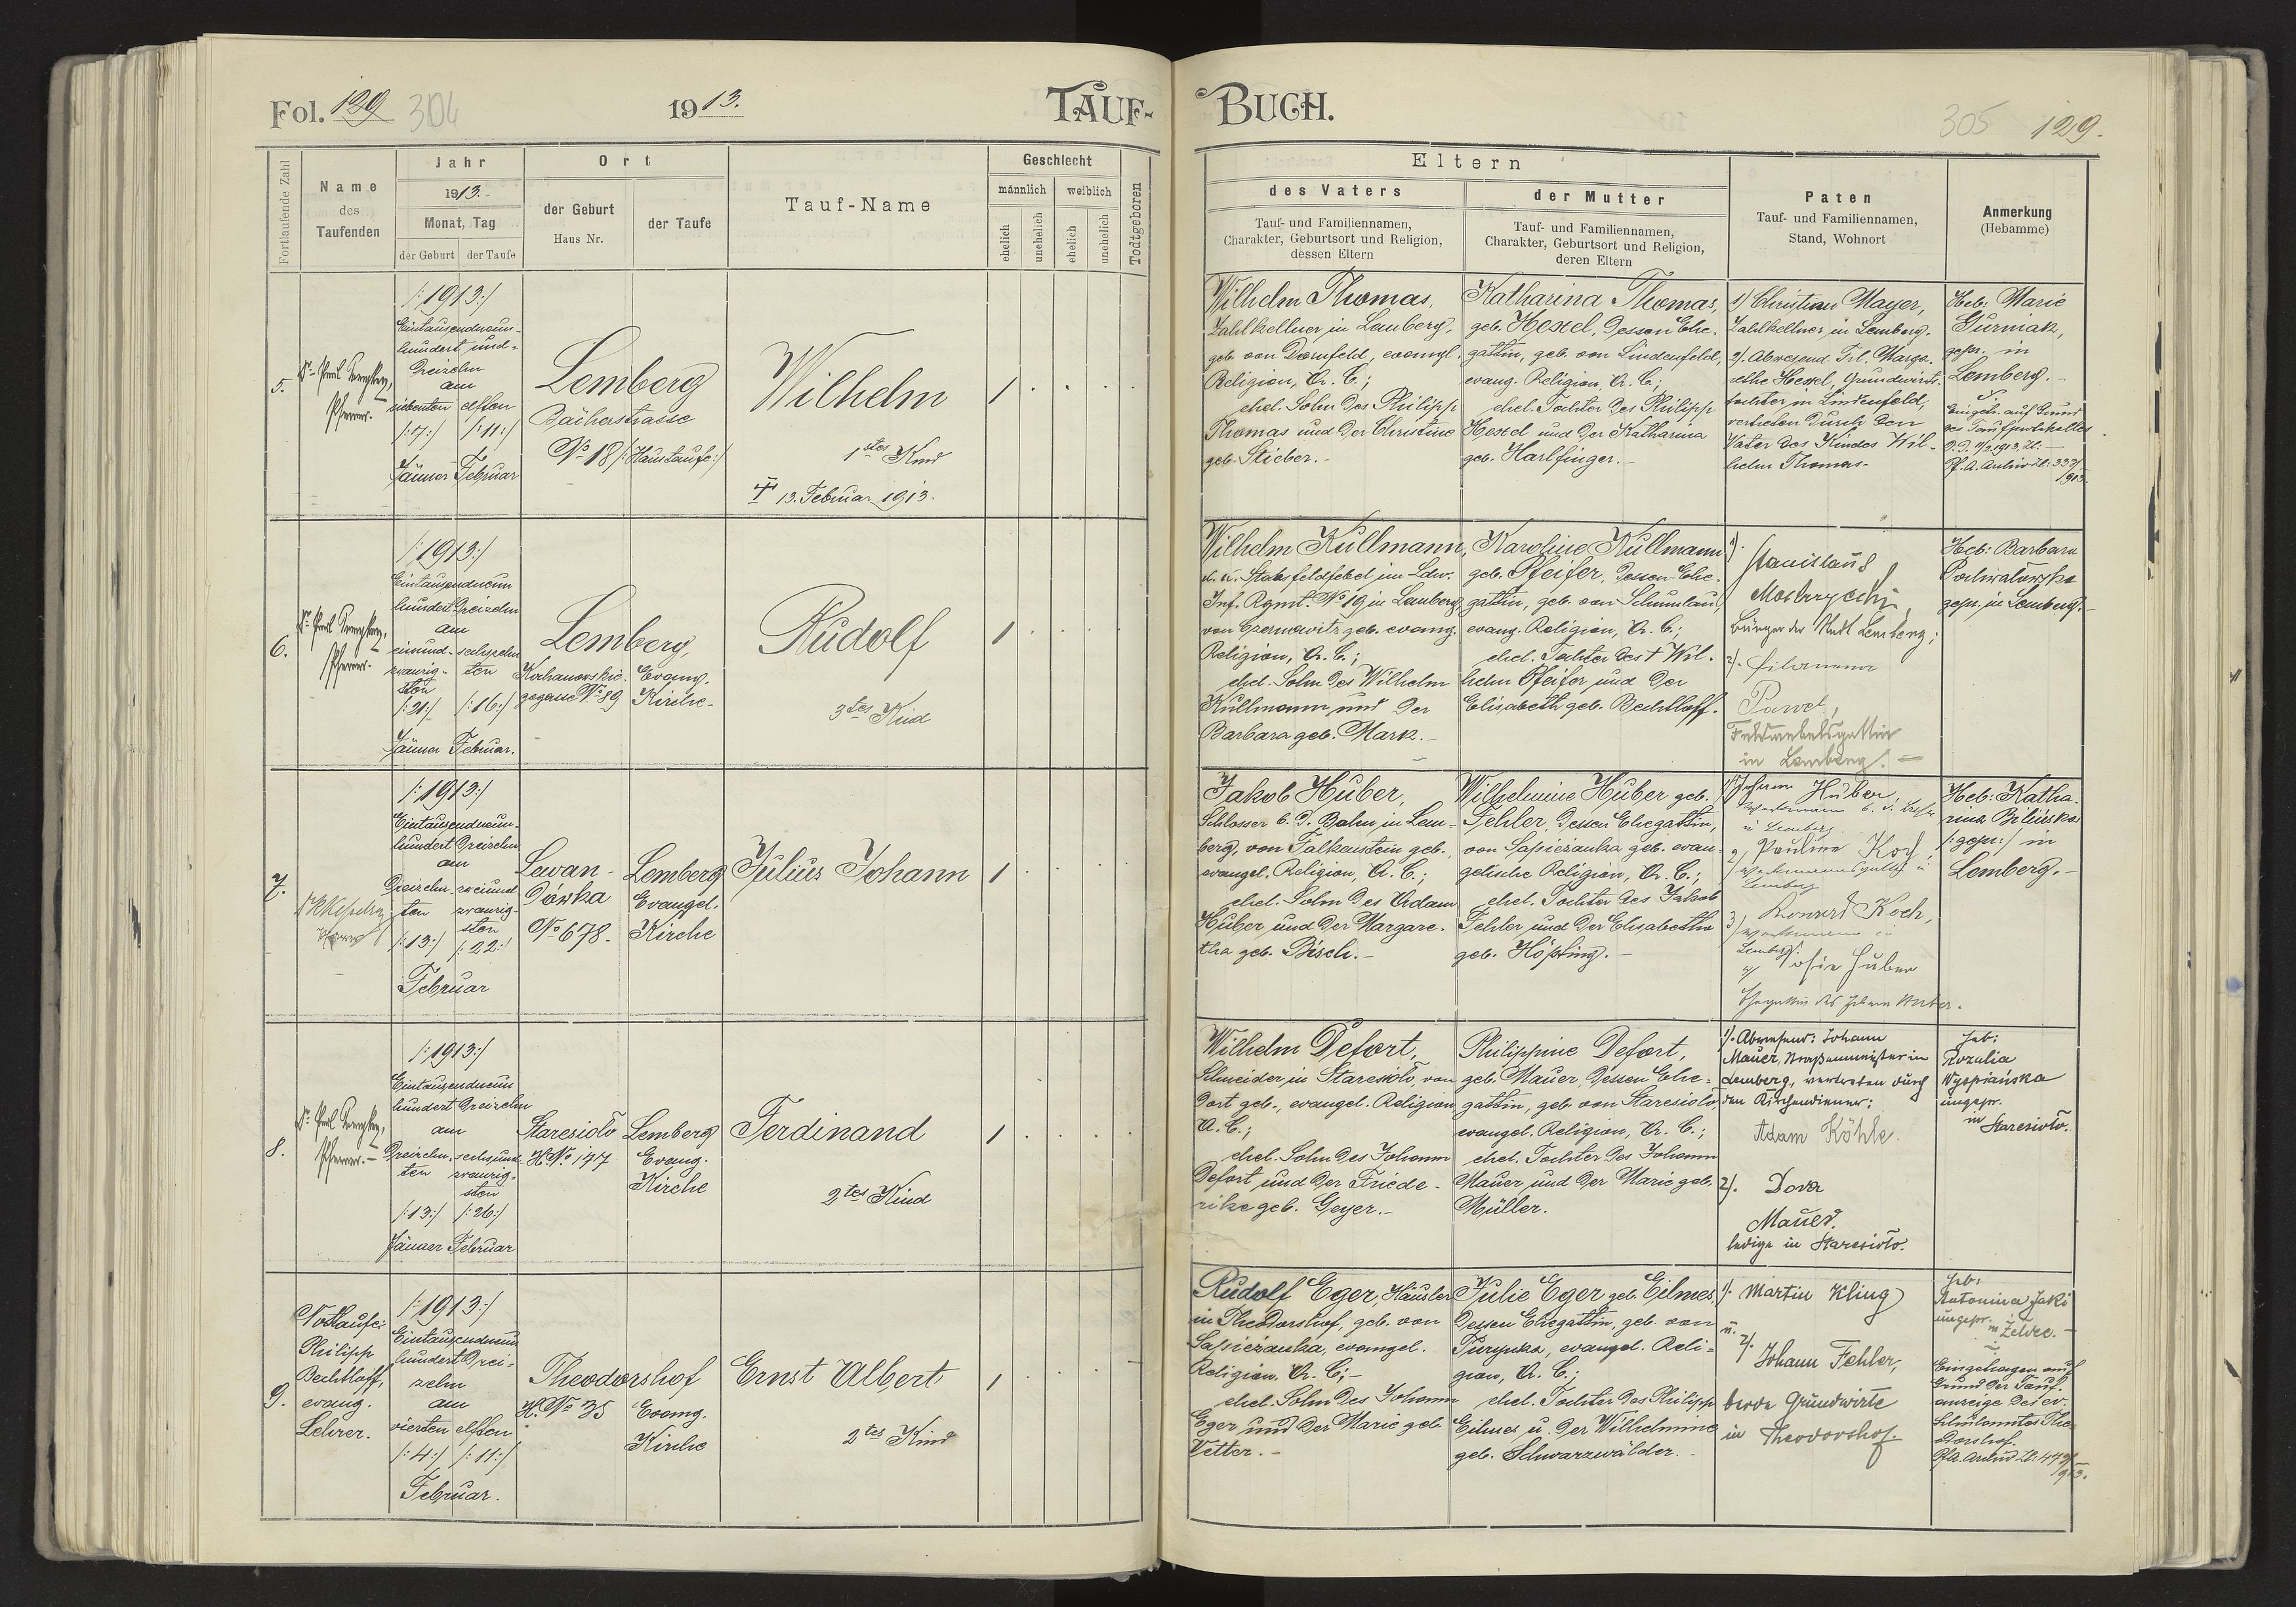 Fol. 129 304
1913.
TAUF-
Fortlaufende Zahl
Name
des
Taufenden
Jahr
1913.-
Monat, Tag
der Geburt
der Taufe
Ort
der Geburt
Haus Nr.
der Taufe
Tauf-Name
Geschlecht
männlich
weiblich
ehelich
unehelich
ehelich
unehelich
Todtgeboren
5.
Pfarrer.-
/:1913:/
Eintausendneun-
hundert und-
dreizehn
am
siebenten elften
/:17:/ /:11:/
Jänner Februar
Lemberg
No 18 /:Haustaufe:/
Wilhelm
1tes Kind
† 13. Februar 1913.
1
6.
Pfarrer.-
/:1913:/
Eintausendneun
hundert dreizehn
am
einund- sechzehn
zwanzig- ten
sten
/:21:/ /:16:/
Jänner Februar.
Lemberg,
Kochanowskie- Evang.
gasse No 89 Kirche.
Rudolf
3tes Kind
1
7.
Pfarrer
/:1913:/
Eintausendneun-
hundert dreizehn
am
dreizehn- zweiund
ten zwanzig-
sten
/:13:/ /:22:/
Februar
Lewan- Lemberg
dówka Evangel.
No 678. Kirche
Julius Johann
1
8.
Pfarrer.-
/:1913:/
Eintausendneun
hundert dreizehn
am
dreizehn- sechsund
ten zwanzig-
sten
/:13:/ /:26:/
Jänner Februar
Staresioło Lemberg
H.No 177 Evang.
Kirche
Ferdinand
2tes Kind
1
9.
Nottaufe:
Philipp
Bechtloff,
evang.
Lehrer.
/:1913:/
Eintausendneun
hundert drei-
zehn
am
vierten elften
/:4:/ /:11:/
Februar.
Theodorshof
H.No 35 Evang.
Kirche
Ernst Albert
2tes Kind
1
BUCH.
305 129.
Eltern
des Vaters
Tauf- und Familiennamen,
Charakter, Geburtsort und Religion,
dessen Eltern
der Mutter
Tauf- und Familiennamen,
Charakter, Geburtsort und Religion,
deren Eltern
Paten
Tauf- und Familiennamen,
Stand, Wohnort
Anmerkung
(Hebamme)
Wilhelm Thomas,
Zahlkellner in Lemberg,
geb. von Dornfeld, evangl.
Religion, A. C.;
ehel. Sohn des Philipp
Thomas und der Christine
geb. Stieber.-
Katharina Thomas,
geb. Hexel, dessen Ehe-
gattin, geb. von Lindenfeld,
evang. Religion, A. C.;
ehel. Tochter des Philipp
Hexel und der Katharina
geb. Harlfinger.-
1) Christian Mayer,
Zahlkellner in Lemberg.
2). Abwesend Frl. Marga-
rethe Hexel, Grundwirts-
tochter in Lindenfeld,
vertreten durch den
Vater des Kindes Wil-
helm Thomas.
Heb: Marie
Gurniak,
gepr. in
Lemberg.-
Eingetr. auf Grund
des Taufprotokolles
Wilhelm Kullmann,
k. k. Stabsfeldfebel im Ldw.
Inf. Rgmt. No 19 in Lemberg,
von Czernowitz geb. evang.
Religion, A. C.;
ehel. Sohn des Wilhelm
Kullmann und der
Barbara geb. Mark.-
Karoline Kullmann
geb. Pfeifer, dessen Ehe-
gattin, geb. von
evang. Religion, A. C.;
ehel. Tochter des † Wil-
helm Pfeifer und der
Elisabeth geb. Bechtloff.
1).
Stanislaus
Bürger der Stadt Lemberg;
2). Filomena
Pawel,
Feldwebelsgattin
in Lemberg.-
Heb: Barbara
gepr. in Lemberg.-
Jakob Huber,
Schlosser b. d. Bahn, in Lem-
berg, von Falkenstein geb.,
evangel. Religion, A. C.;
ehel. Sohn des Adam
Huber und der Margare-
tha geb. Bisch.-
Wilhelmine Huber geb.
Fehler, dessen Ehegattin,
von Sapieżanka geb. evan-
gelische Religion, A. C.;
ehel. Tochter des Jakob
Fehler und der Elisabetha
geb. Höpfing.-
1) Johann Huber,
in Lemberg
2) Pauline Koch,
Lemberg
3) Konrad Koch,
Lemberg
4) Sofie Huber
Ehegattin des Johann Huber.
Heb: Katha-
rina Bilińska
/:gepr:/ in
Lemberg.-
Wilhelm Defort,
Schneider in Staresioło, von
Dort geb., evangel. Religion
A. C.;
ehel. Sohn des Johann
Defort und der Friede-
rike geb. Geyer.-
Philippine Defort,
geb. Mauer, dessen Ehe-
gattin, geb. von Staresioło,
evangel. Religion, A. C.;
ehel. Tochter des Johann
Mauer und der Marie geb.
Müller.
1). Abwesend: Johann
Mauer, Straßenmeister in
Lemberg, vertreten durch
den Kirchendiener:
Adam Köhle.
2). Dora
Mauer.
ledige in Staresioło.
Heb:
Rozalia
Wyspiańska
ungepr.
in Staresioło.
Rudolf Eger, Häusler
in Theodorshof, geb. von
Sapieżanka, evangel.
Religion, A. C.;-
ehel. Sohn des Johann
Eger und der Marie geb.
Vetter.-
Julie Eger geb. Eilmes,
dessen Ehegattin, geb. von
evangel. Reli-
gion, A. C.;
ehel. Tochter des Philipp
Eilmes u. der Wilhelmine
geb. Schwarzwälder.-
1). Martin Kling
u.
2).
Johann Fehler,
beide Grundwirte
in Theodorshof.
Heb:
Antonina Jaki
ungepr.
in Żeldec.-
Eingetragen auf
Grund der Tauf-
anzeige des ev.
Schulamtes Theo-
dorshof.